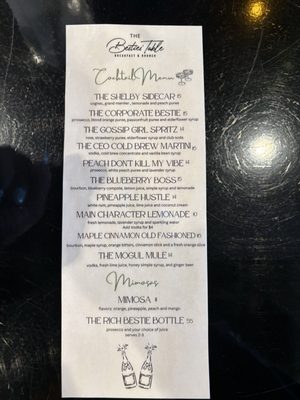 THE
Besties Table
BREAKFAST & BRUNCH
Cocktail Menu
THE SHELBY SIDECAR 15
cognac, grand marnier, lemonade and peach puree
THE CORPORATE BESTIE 15
prosecco, blood orange puree, passionfruit puree and elderflower syrup
THE GOSSIP GIRL SPRITZ 14
rose, strawberry puree, elderflower syrup and club soda
THE CEO COLD BREW MARTINI 15
vodka, cold brew concentrate and vanilla bean syrup
PEACH DON'T KILL MY VIBE 14
prosecco, white peach puree and lavender syrup
THE BLUEBERRY BOSS 15
bourbon, blueberry compote, lemon juice, simple syrup and lemonade
PINEAPPLE HUSTLE 14
white rum, pineapple juice, lime juice and coconut cream
MAIN CHARACTER LEMONADE 10
fresh lemonade, lavender syrup and sparkling water
Add Vodka for $4
MAPLE CINNAMON OLD FASHIONED 16
bourbon, maple syrup, orange bitters, cinnamon stick and a fresh orange slice
THE MOGUL MULE 14
vodka, fresh lime juice, honey simple syrup, and ginger beer
Mimosas
MIMOSA 11
flavors: orange, pineapple, peach and mango
THE RICH BESTIE BOTTLE 55
prosecco and your choice of juice
serves 2-3